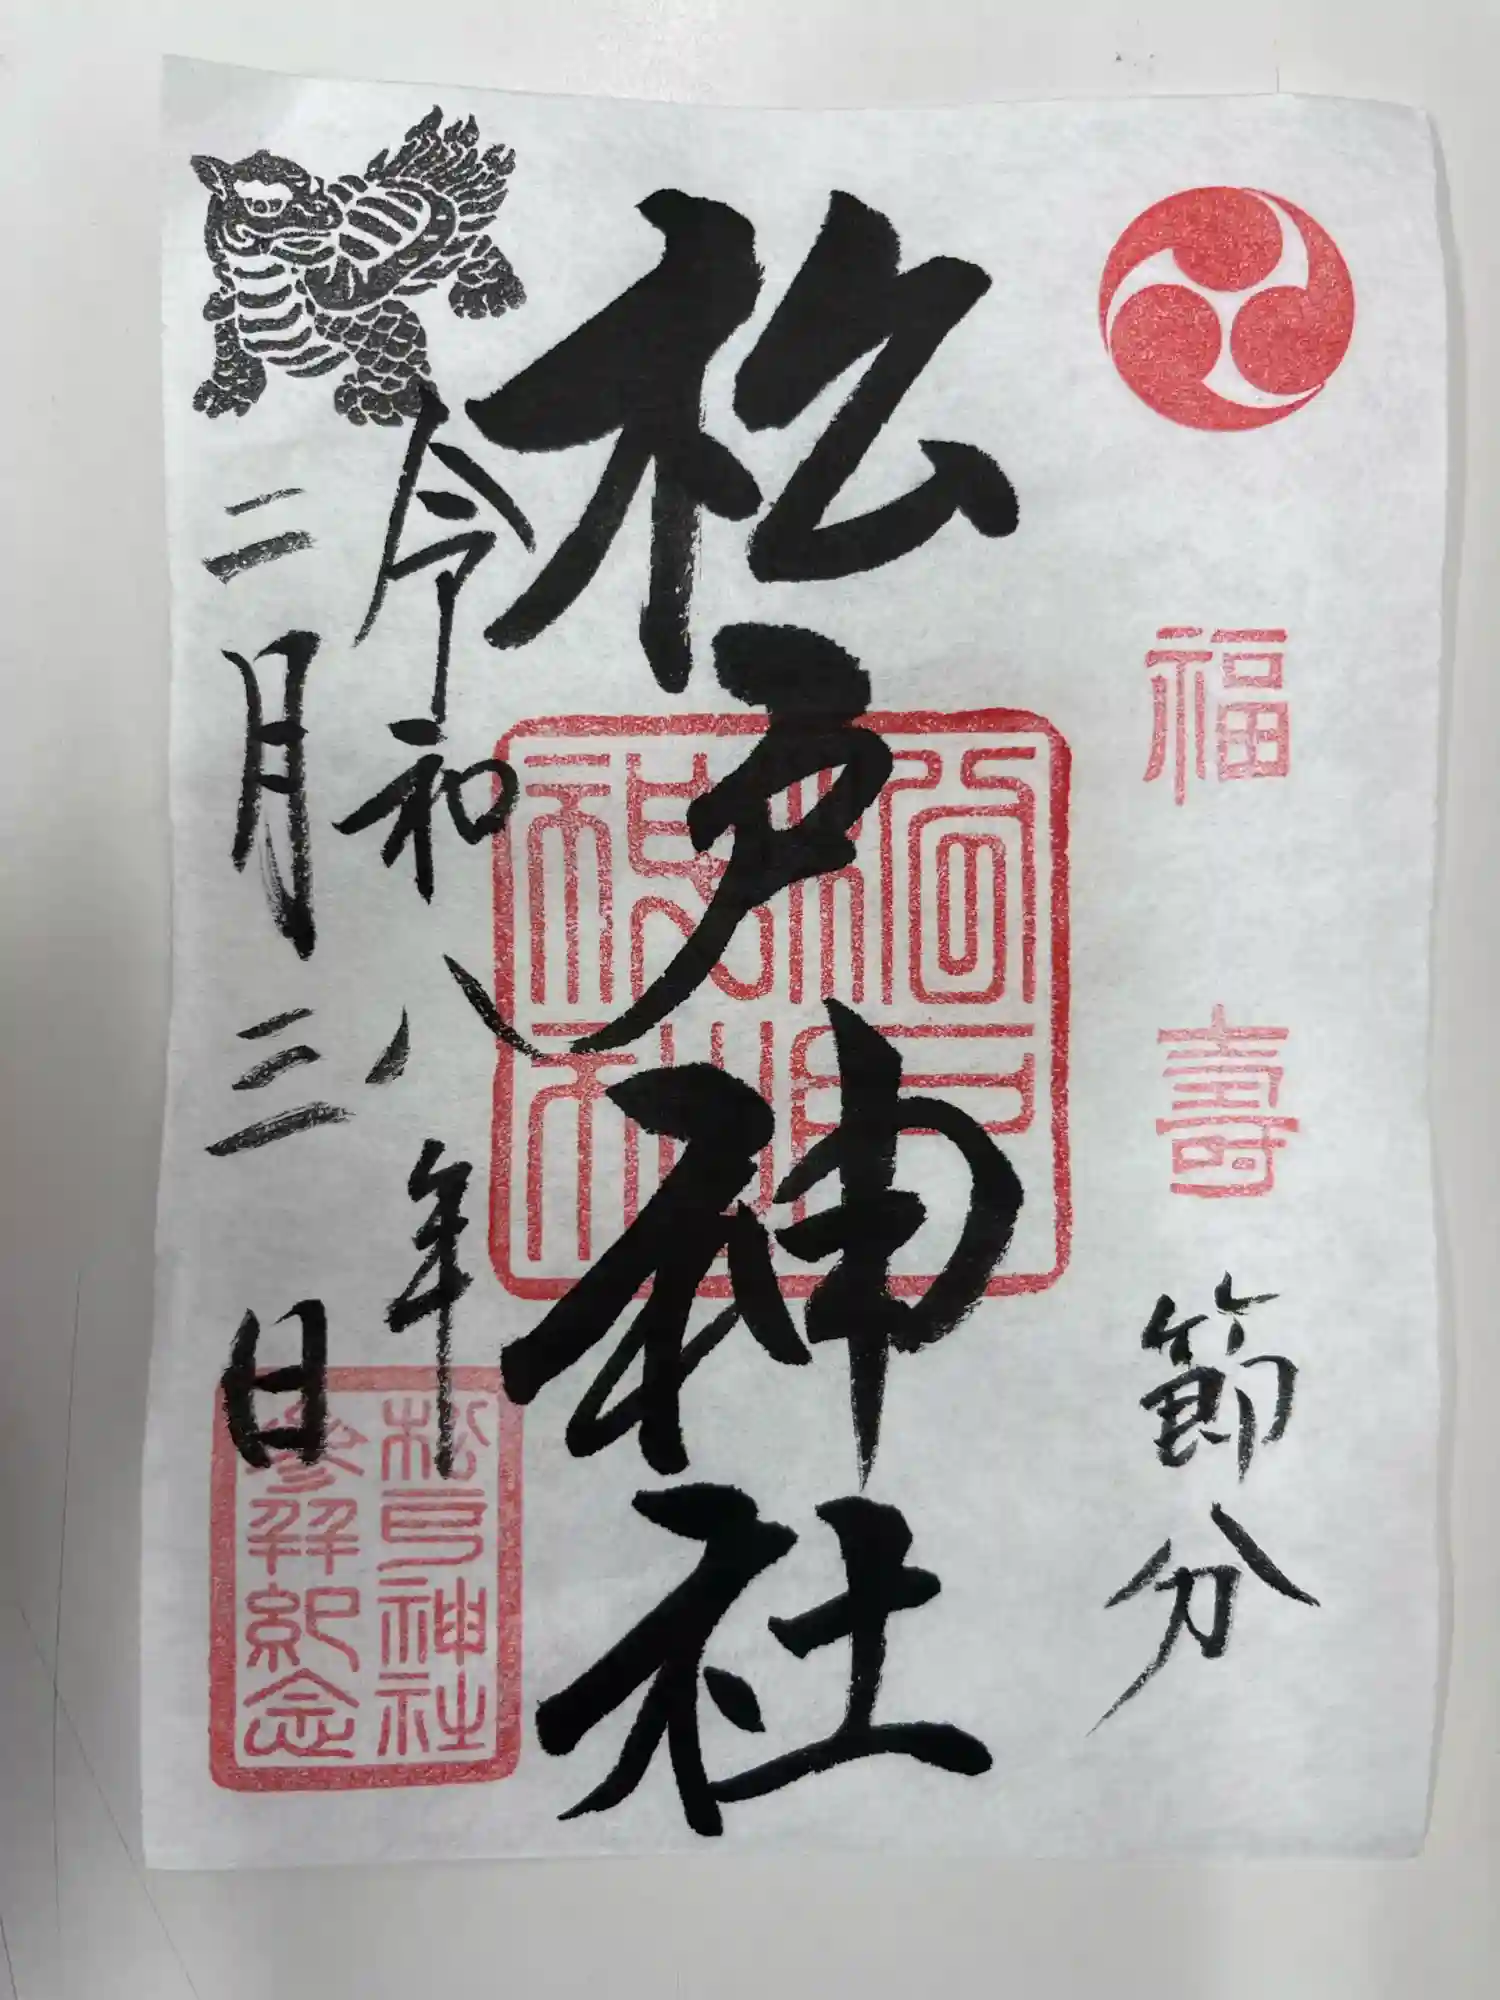 福壽
節分
松戸神社
松戸神社
令和八年
二月三日
松戸神社
参拝紀念